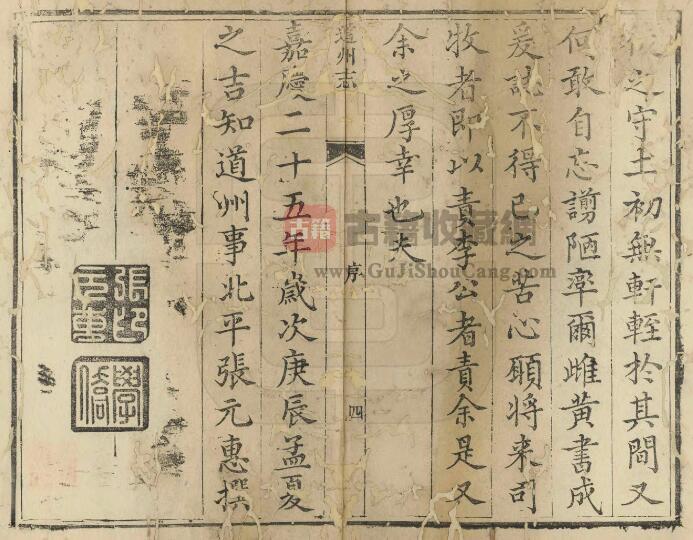 之守土初無軒輊於其間又
何敢自忘謭陋率爾雌黄書成
爰誌不得已之苦心願將来司
牧者即以責李公者責余是又
余之厚幸也夫
道州志
序
四
嘉慶二十五年歲次庚辰孟夏
之吉知道州事北平張元惠撰
古籍
古籍收藏網
www.GuJiShouCang.com